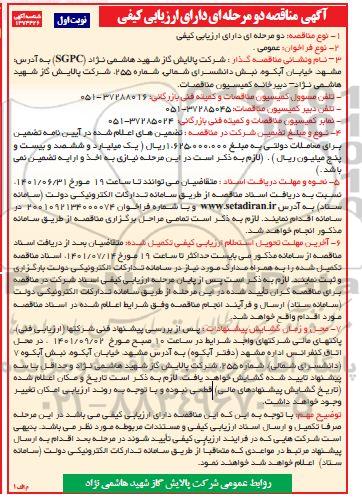 آگهی مناقصه دو مرحله ای دارای ارزیابی کیفی
نوبت اول
شناسه آگهی
۱۳۷۳۳۲۶
۱- نوع مناقصه: دو مرحله ای دارای ارزیابی کیفی
۲- نوع فراخوان: عمومی .
۳- نام ونشانی مناقصه گذار : شرکت پالایش گاز شهید هاشمی نژاد (SGPC) به آدرس:
مشهد، خیابان آبکوه، نبش دانشسرای شمالی، شماره ۲۵۵. شرکت پالایش گاز شهید
هاشمی نژاد - دبیرخانه کمیسیون مناقصات.
- تلفن مسوول کمیسیون مناقصات و کمیته فنی بازرگانی: ۳۷۲۸۸۰۱۶-۰۵۱
- تلفن دبیر کمیسیون مناقصات: ۳۷۲۸۵۰۴۵-۰۵۱
- نمابر کمیسیون مناقصات و کمیته فنی بازرگانی: ۳۷۲۸۵۰۲۴-۰۵۱
۴- نوع و مبلغ تضمین شرکت در مناقصه : تضمین های اعلام شده در آیین نامه تضمین
برای معاملات دولتی به مبلغ ۱.۶۲۵.۰۰۰.۰۰۰ ریال ( یک میلیارد و ششصد و بیست و
پنج میلیون ریال ) . (لازم به ذکر است در این مرحله نیازی به اخذ و ارایه تضمین نمی
باشد.)
۵- نحوه و مهلت دریافت اسناد : متقاضیان می توانند تا ساعت ۱۹ مورخ ۱۴۰۱/۰۶/۳۱
نسبت به دریافت اسناد مناقصه از طریق سامانه تدارکات الکترونیکی دولت (سامانه
ستاد) به آدرس www.setadiran.ir و با شماره فراخوان ۲۰۰۱۰۹۲۱۲۳۴۰۰۰۰۷۴ در
سامانه اقدام نمایند. لازم به ذکر است تمامی مراحل برگزاری مناقصه از طریق سامانه
مذکور انجام خواهد شد.
۶- آخرین مهلت تحویل استعلام ارزیابی کیفی تکمیل شده: متقاضیان بعد از دریافت اسناد
مناقصه از سامانه مذکور می بایست حداکثر تا ساعت ۱۹ مورخ ۱۴۰۱/۰۷/۱۴، اسناد
تکمیل شده را به همراه مدارک مورد نیاز در سامانه تدارکات الکترونیکی دولت بارگزاری
و ثبت نمایند. لازم به ذکر است پس از پایان مرحله ارزیابی کیفی اسناد شرکت در مناقصه
برای مناقصه گران تایید شده در این مرحله از طریق سامانه تدارکات الکترونیکی دولت
(سامانه ستاد) ارسال و فرآیند انجام مناقصه وفق شرایط اعلام شده در اسناد مناقصه
مورد اقدام واقع خواهد شد.
۷- محل و زمان گشایش پیشنهادات : پس از بررسی پیشنهاد فنی شرکتها (ارزیابی فنی)
پاکتهای مالی شرکتهای واجد شرایط در ساعت ۱۰ صبح مورخ ۱۴۰۱/۰۹/۰۲ . در محل
اتاق کنفرانس اداره مشهد (دفتر آبکوه) به آدرس مشهد، خیابان آبکوه، نبش آبکوه ۷
(دانشسرای شمالی)، شماره ۲۵۵، شرکت پالایش گاز شهید هاشمی نژاد و حداقل با سه
پیشنهاد تایید شده گشایش خواهد یافت. لازم به ذکر است تاریخ و مکان اعلام شده
(تاریخ گشایش پیشنهادهای مالی) قطعی نبوده و با توجه به روند ارزیابی، امکان تغییر
وجود خواهد داشت.
توضیح مهم: با توجه به این که این مناقصه دارای ارزیابی کیفی می باشد در این مرحله
صرفا تکمیل و ارسال اسناد ارزیابی کیفی و مستندات مربوطه مورد نظر می باشد. بدیهی
است شرکت هایی که در فرآیند ارزیابی کیفی تایید شوند در مرحله بعد اقدام به ارسال
پیشنهاد مرتبط در مواعدی که متعاقبا از طریق سامانه تدارکات الکترونیکی دولت (سامانه
ستاد) اعلام خواهد شد خواهند نمود.
روابط عمومی شرکت پالایش گاز شهید هاشمی نژاد
م الف ۱